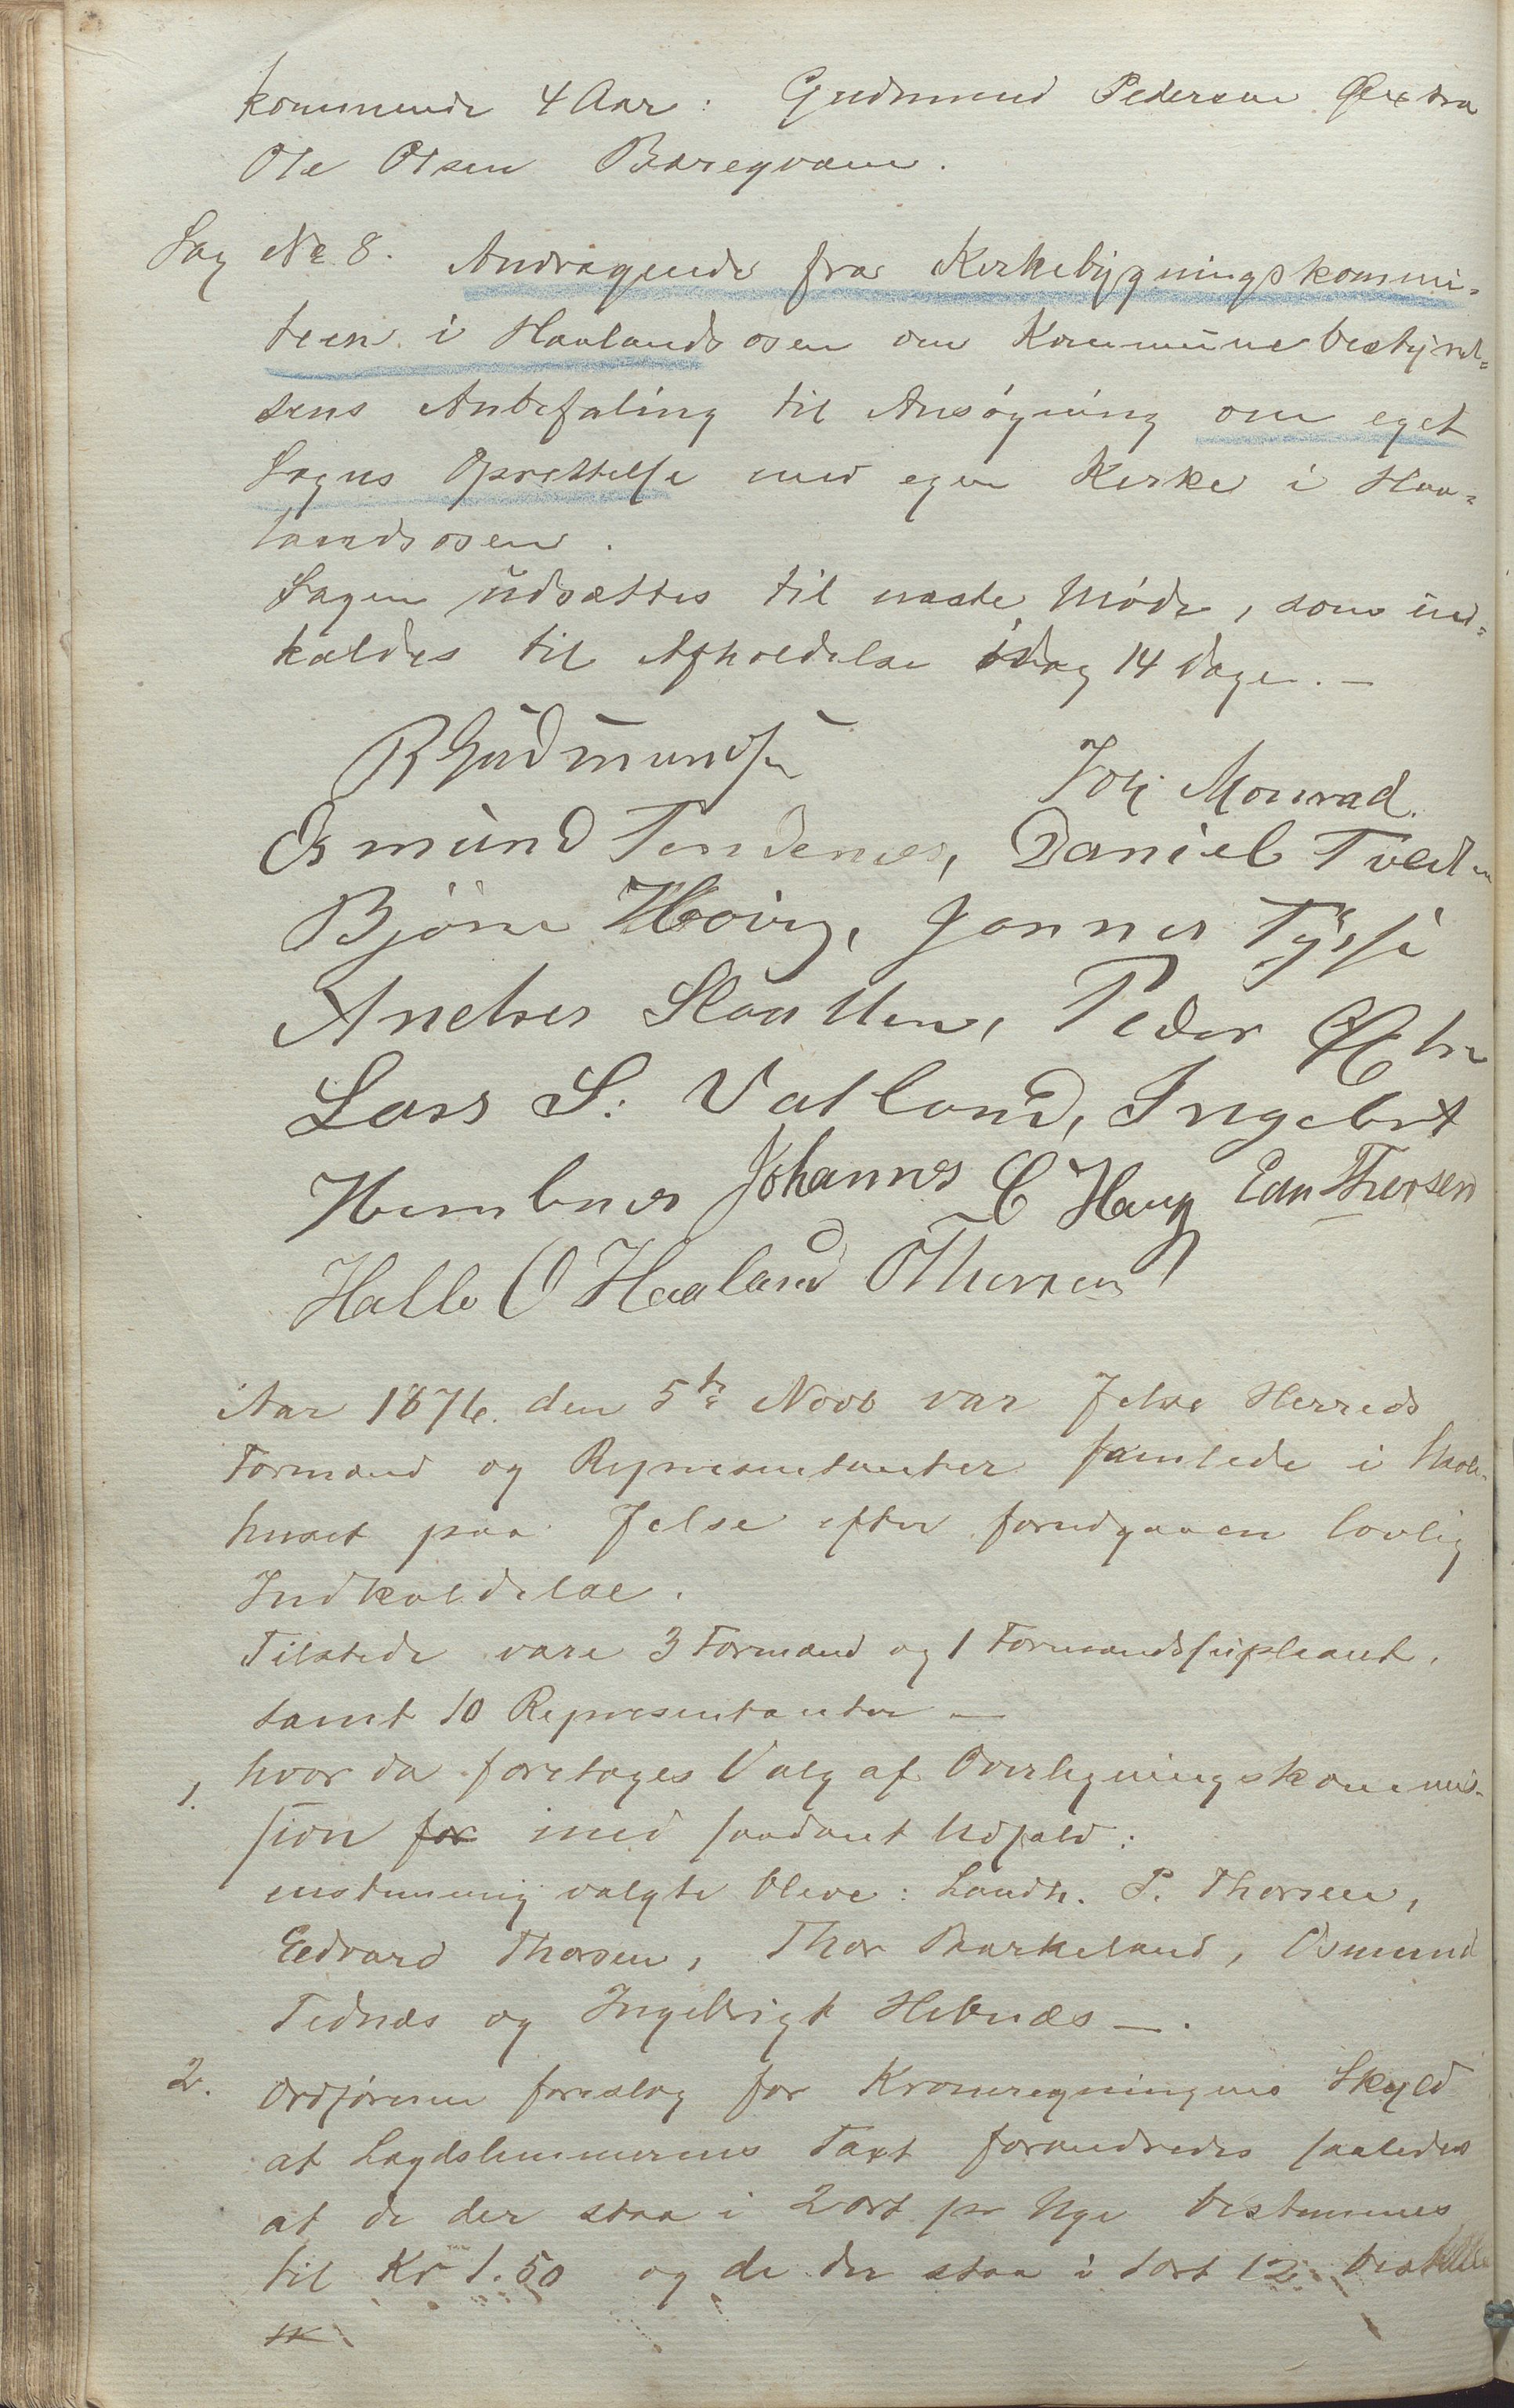 kommende 4 Aar: Gudmund Pedersen Øxtra
Ole Olsen Baregvam.
Sag No 8. Andragende fra Kirkebygningskommi-
teen i Haalandsosen om Kommunebestyrel-
sens Anbefaling til Ansøgning om eget
Sogns Oprettelse med egen Kirke i Haa-
landsosen.
Sagen udsættes til næste Møde, som ind-
kaldes til Afholdelse idag 14 Dage. —
R Gudmundsen Joh Monrad.
Osmund Tendenes, Daniel Tveden
Bjørn Høivig, Jonnes Tysse
Anders Slaatten, Peder
Lars S. Vatland, Ingebrt
Hembnes Johannes C Haug Edv Thorsen
Halle O Haaland O Thorsen
Aar 1876. den 5te Novb var Jelse Herreds
Formænd og Representanter samlede i Skole-
huset paa Jelse efter forudgaaen lovlig
Indkaldelse.
Tilstede vare 3 Formænd og 1 Formandssupleant,
samt 10 Representanter —
1. hvor da foretoges Valg af Overligningskommis-
sion for med saadant Udfald:
enstemmig valgte bleve: Landh. P. Thorsen,
Edvard Thorsen, Thor Barkeland, Osmund
Tednæs og Ingebrigt Hebnæs —.
2. Ordføreren foreslog for Kroneregningens Skyld
at Lægdslemmernes Taxt forandredes saaledes
at de der staa i 2 ort pr Uge bestemmes
til Kr 1.50 og de der staa i 1 ort 12